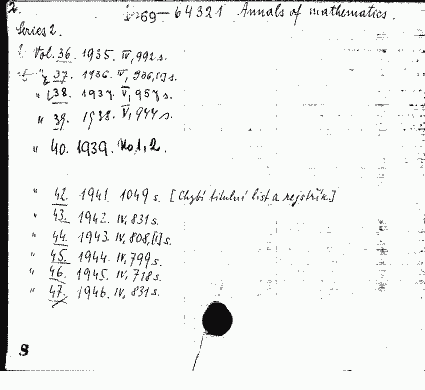 2.
69-64321 Annals of mathematics.
Series 2.
Vol. 36. 1935. IV, 992 s.
" 37. 1936. IV, 936, [1] s.
" 38. 1937. V, 957 s.
" 39. 1938. V, 944 s.
" 40. 1939. No 1, 2.
" 42. 1941. 1049 s. [Chybí titulní list a rejstřík]
" 43. 1942. IV, 831 s.
" 44. 1943. IV, 808, [1] s.
" 45. 1944. IV, 799 s.
" 46. 1945. IV, 718 s.
" 47. 1946. IV, 831 s.
8